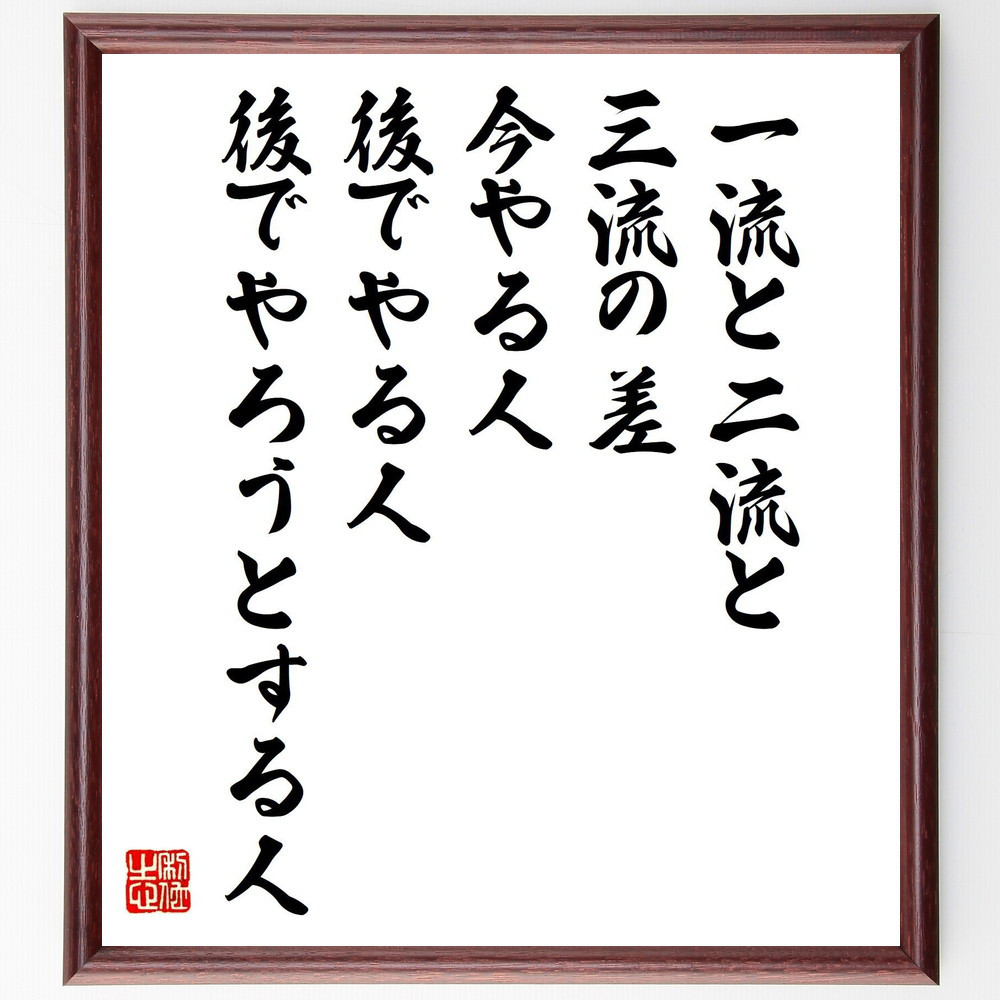 一流と二流と
三流の差
今やる人
後でやる人
後でやろうとする人